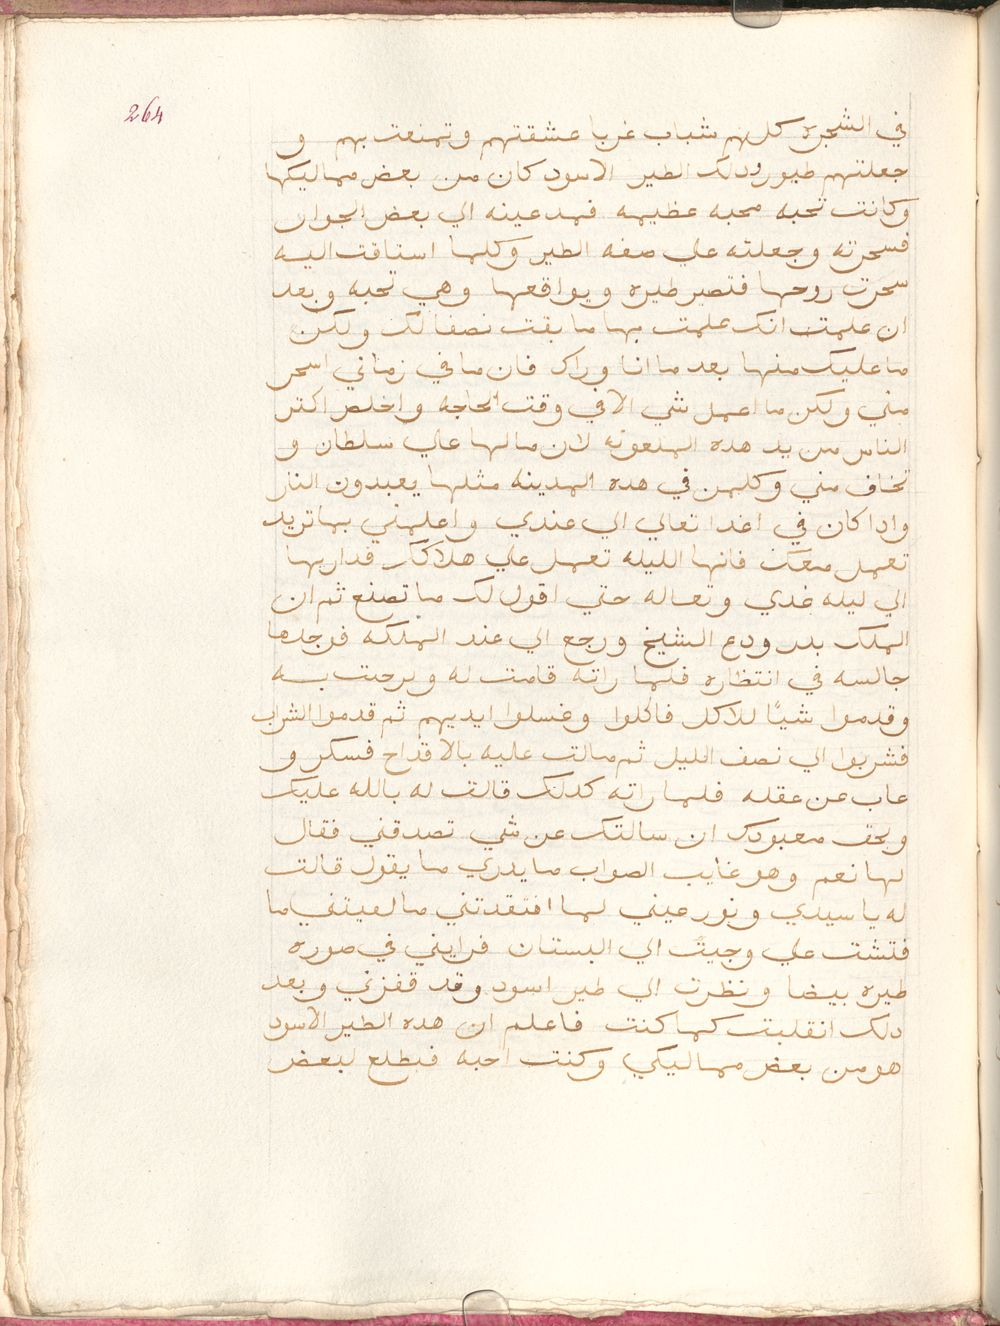 264
في الشجره كلهم شباب غربا عشقتهم وتمنعت بهم و
جعلتهم طيور ودلك الطير الاسود كان من بعض مماليكها
وكانت تحبه محبه عظيمه فمد عينه الي بعض الجوار
فسحرته وجعلته علي صفه الطير وكلما استاقت اليه
سحرت روحها فتصير طيره ويواقعها وهي تحبه وبعد
ان علمت انك علمت بها ما بقت تصفا لك ولكن
ما عليك منها بعد ما انا وراك فان ما في زماني اسحر
مني ولكن ما اعمل شي الا في وقت الحاجه واخلص اكتر
الناس من يد هده الملعونه لان ما لها علي سلطان و
تخاف مني وكلمن في هده المدينه مثلها يعبدون النار
وادا كان في اغدا تعالي الي عندي واعلمني بما تريد
تعمل معك فانها الليله تعمل علي هلاكك فداريها
الي ليله غدي وتعاله حتي اقول لك ما تصنع ثم ان
الملك بدر ودع الشيخ ورجع الي عند الملكه فوجدها
جالسه في انتظاره فلما راته قامت له ورحبت به
وقدموا شيًا للاكل فاكلوا وغسلوا ايديهم ثم قدموا الشراب
فشربوا الي نصف الليل ثم مالت عليه بالاقداح فسكر و
عاب عن عقله فلما راته كدلك قالت له بالله عليك
وبحق معبودك ان سالتك عن شي تصدقني فقال
لها نعم وهو غايب الصواب ما يدري ما يقول قالت
له يا سيدي ونور عيني لما افتقدتني ما لقيتني ما
فتشت علي وجيت الي البستان فرايتني في صوره
طيره بيضا ونظرت الي طير اسود وقد قفزني وبعد
دلك انقلبت كما كنت فاعلم ان هده الطير الاسود
هو من بعض مماليكي وكنت احبه فتطلع لبعض